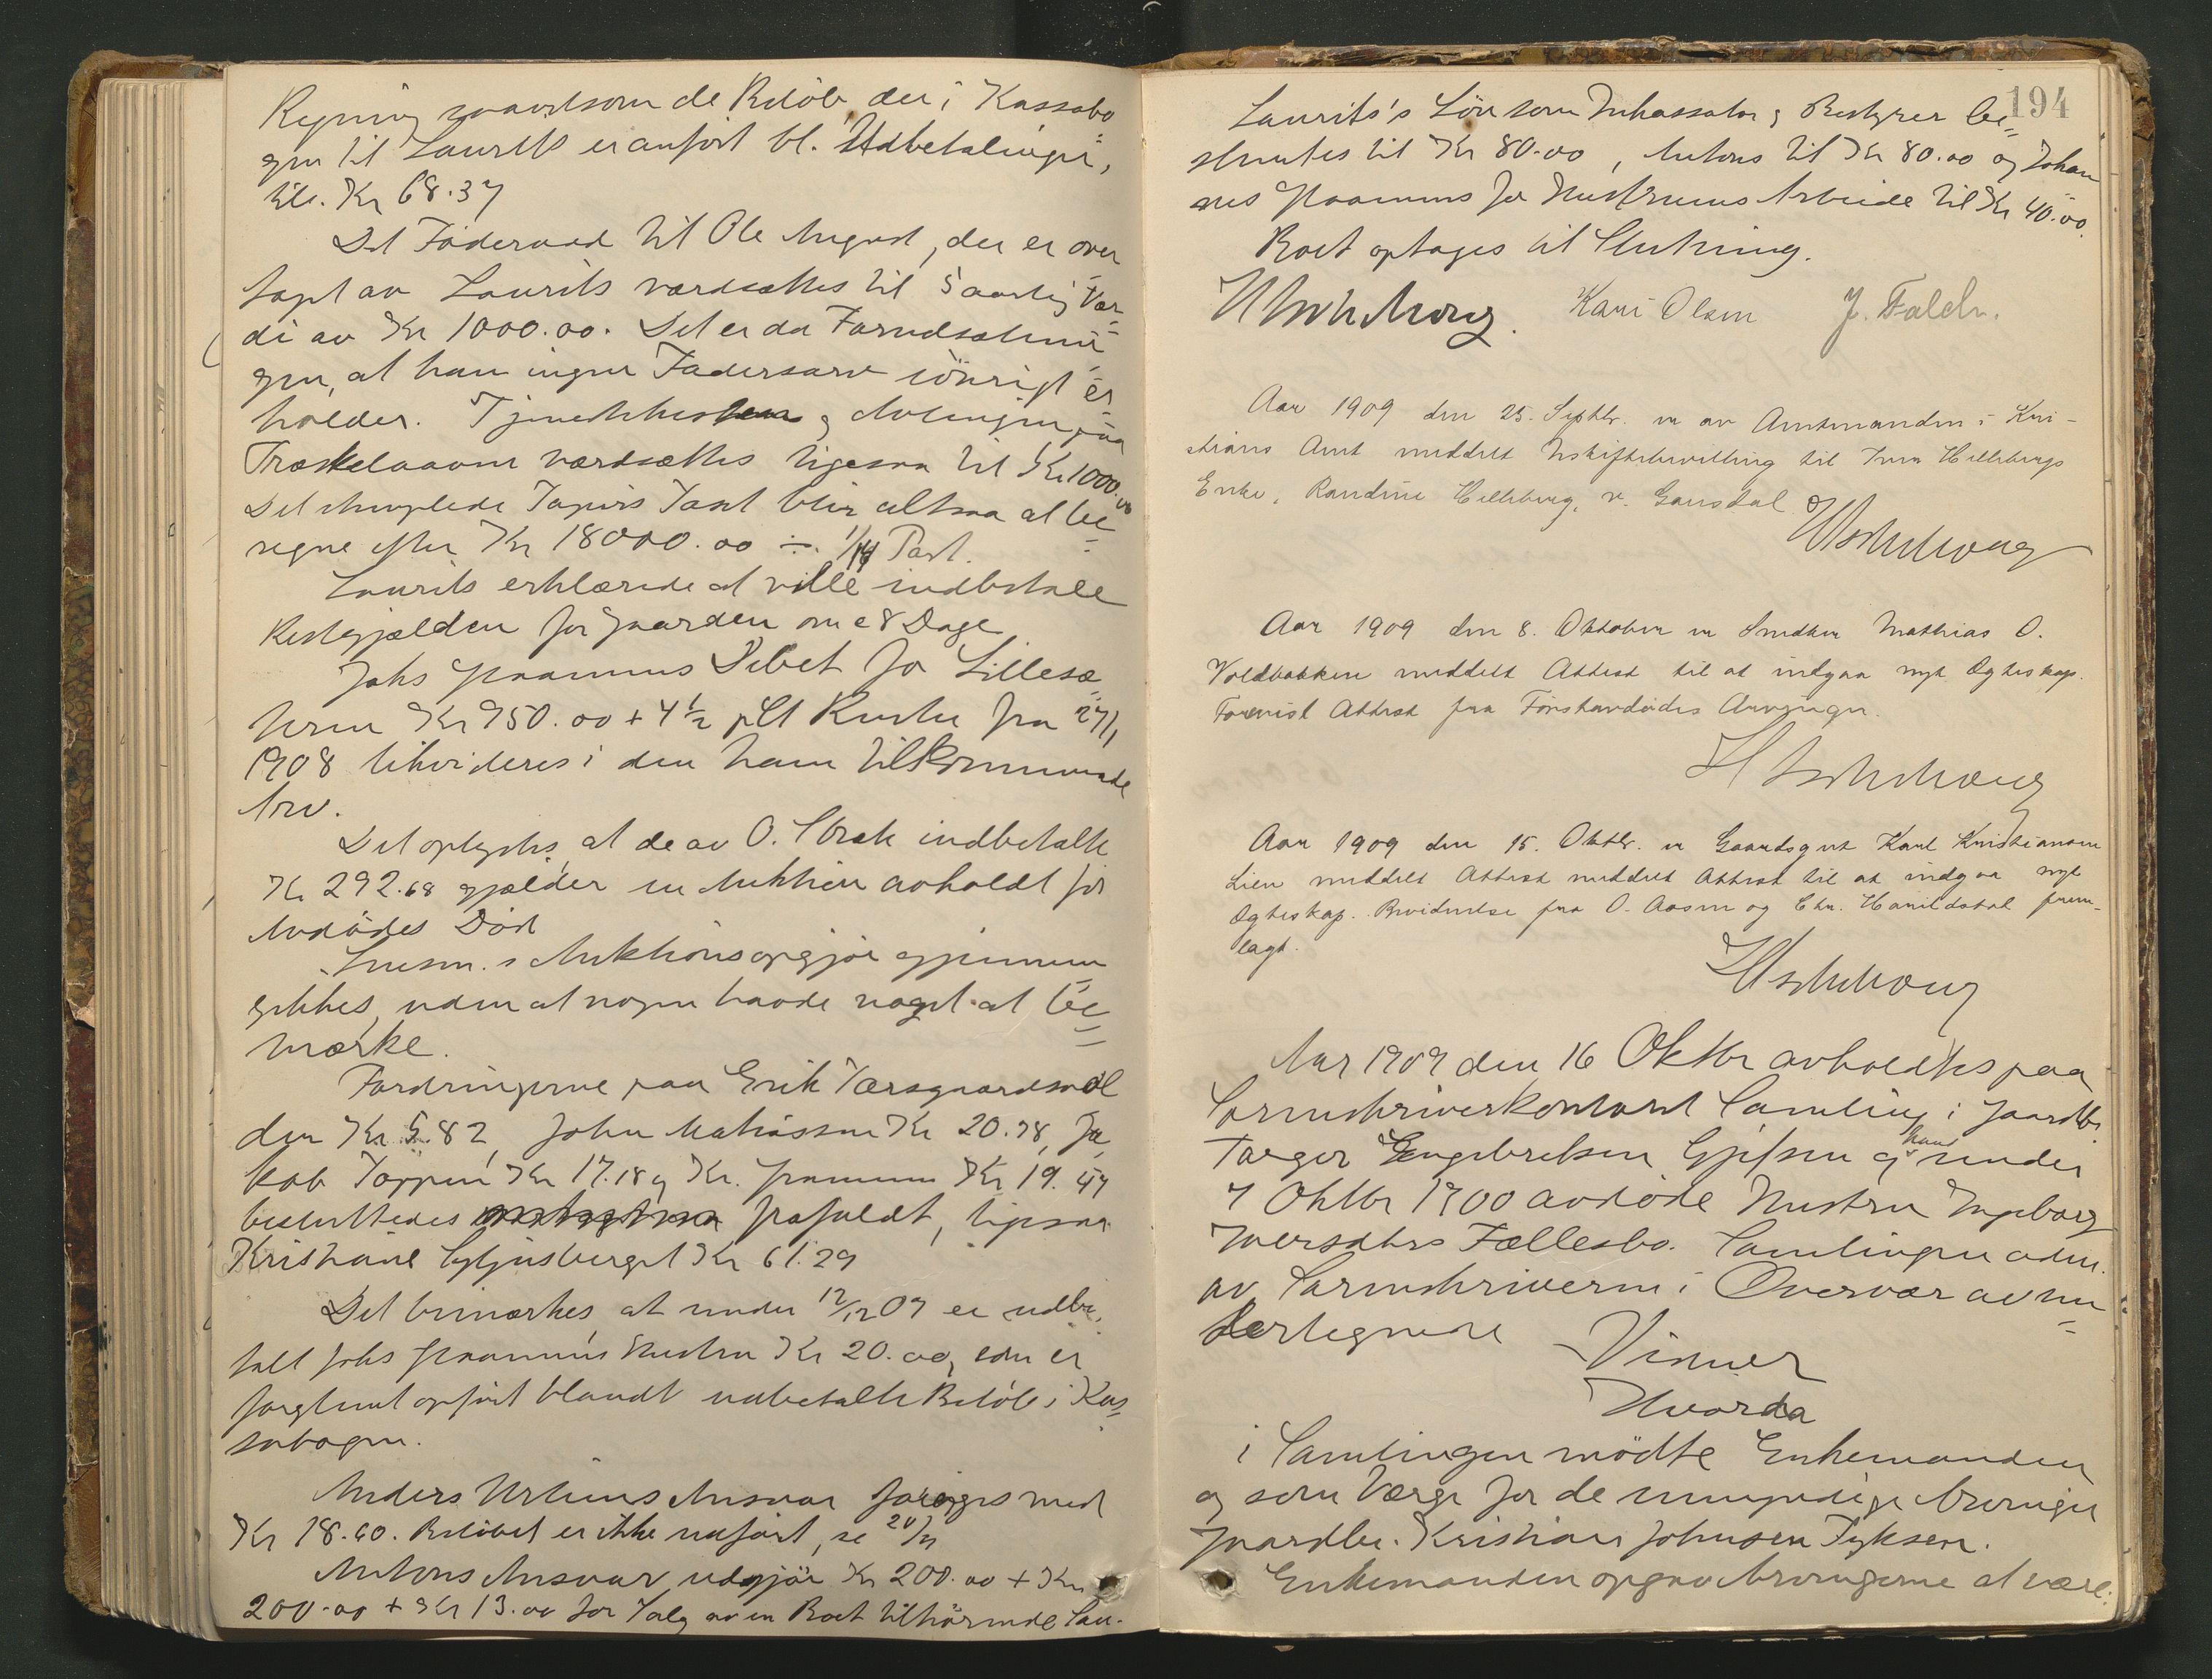 Regning saavelsom de Beløb, der i Kassabo
gen til Laurits er anført bl. Udbetalinger,
tils. Kr 68.37
Det Føderaad til Ole August, der er over
tagt av Laurits værdsættes til 5 aarlig Vær
di av Kr 1000.00. Det er da Forudsætnin
gen, at han ingen Fadersarv iøvrigt er
holder. og paa
værdsættes ligesaa til Kr 1000.00
Det blir altsaa at be
regne efter Kr 18000.00 ÷ 1/14 Part.
Laurits erklærede at ville indbetale
Restgjælden for Gaarden om 8 Dage
Johs Debet for Lillesæ
teren Kr 950.00 + 4 1/2 pCt Renter fra 27/1
1908 likvideres i den ham tilkommende
Arv.
Det oplystes, at de av O. indbetalte
Kr 292.68 gjælder en Auktion avholdt før
Avdødes Død
Lensm.s Auktionsopgjør gjennem
gikkes, uden at nogen havde noget at be
mærke.
Fordringerne paa Erik
den Kr 5.82, John Mathiassen Kr 20.78, Ja
kob Kr 17.18 og Kr. Kr 19.47
besluttedes frafaldt, ligesaa
Kristiane Kr 61.29
Det bemærkes at under 12/12 07 er udbe
talt Johs Hustru Kr 20.00, som er
forglemt opført blandt udbetalte Beløb i Kas
sabogen.
Anders Ansvar forøges med
Kr 18.60. Beløbet er ikke udført, se
Antons Ansvar udgjør Kr 200.00 + Kr
200.00 + Kr 13.00 for Salg av en Boet tilhørende
194
Laurits's Løn som Inkassator og Bestyrer be
stemtes til Kr 80.00, Antons til Kr 80.00 og Johan
nes for Hustruens Arbeide til Kr 40.00.
Boet optages til Slutning.
Kari Olsen J. Falch.
Aar 1909 den 25. Septbr. er av Amtmanden i Kri-
stians Amt meddelt Uskiftebevilling til Iver Hillebergs
Enke, Randine Hilleberg, v. Gausdal
Aar 1909 den 8. Oktober er Snedker Mathias O.
Voldbakken meddelt Attest til at indgaa nyt Ægteskap.
Forevist Attest fra Førstavdødes Arvinger.
Aar 1909 den 15. Oktbr. er Gaardsgut Karl Kristiansen
Lien meddelt Attest meddelt Attest til at indgaa nyt
Ægteskap. Bevidnelse fra O. Aasen og Chr. Haraldstal frem-
lagt.
Aar 1909 den 16 Oktbr avholdtes paa
Sorenskriverkontoret Samling i Gaardbr.
Torger Engebretsen og hans under
7 Oktbr 1900 avdøde Hustru Ingeborg
Iversdtrs Fællesbo. Samlingen adm.
av Sorenskriveren i Overvær av un
dertegnede Vidner
Hvorda
i Samlingen mødte Enkemanden
og som Værge for de umyndige Arvinger
Gaardbr. Kristian Johnsen Fyksen.
Enkemanden opgav Arvingerne at være: